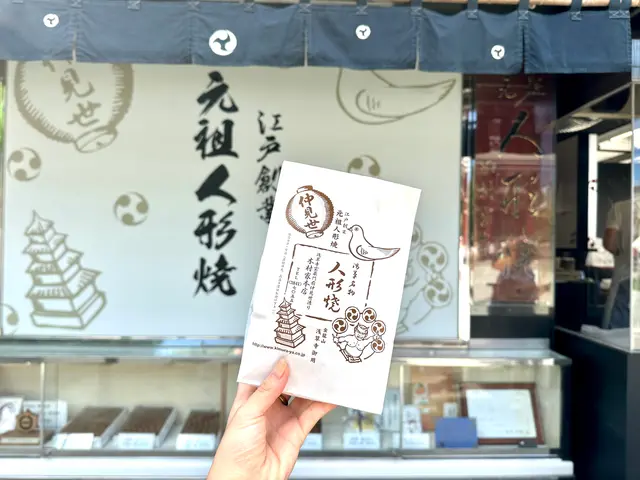 仲見世
元祖人形焼
江戸創業
人形
仲見世
江戸創業
元祖人形焼
浅草名物
人形焼
木村家本店
金龍山
浅草寺御用
http://www.kimura-ya.co.jp